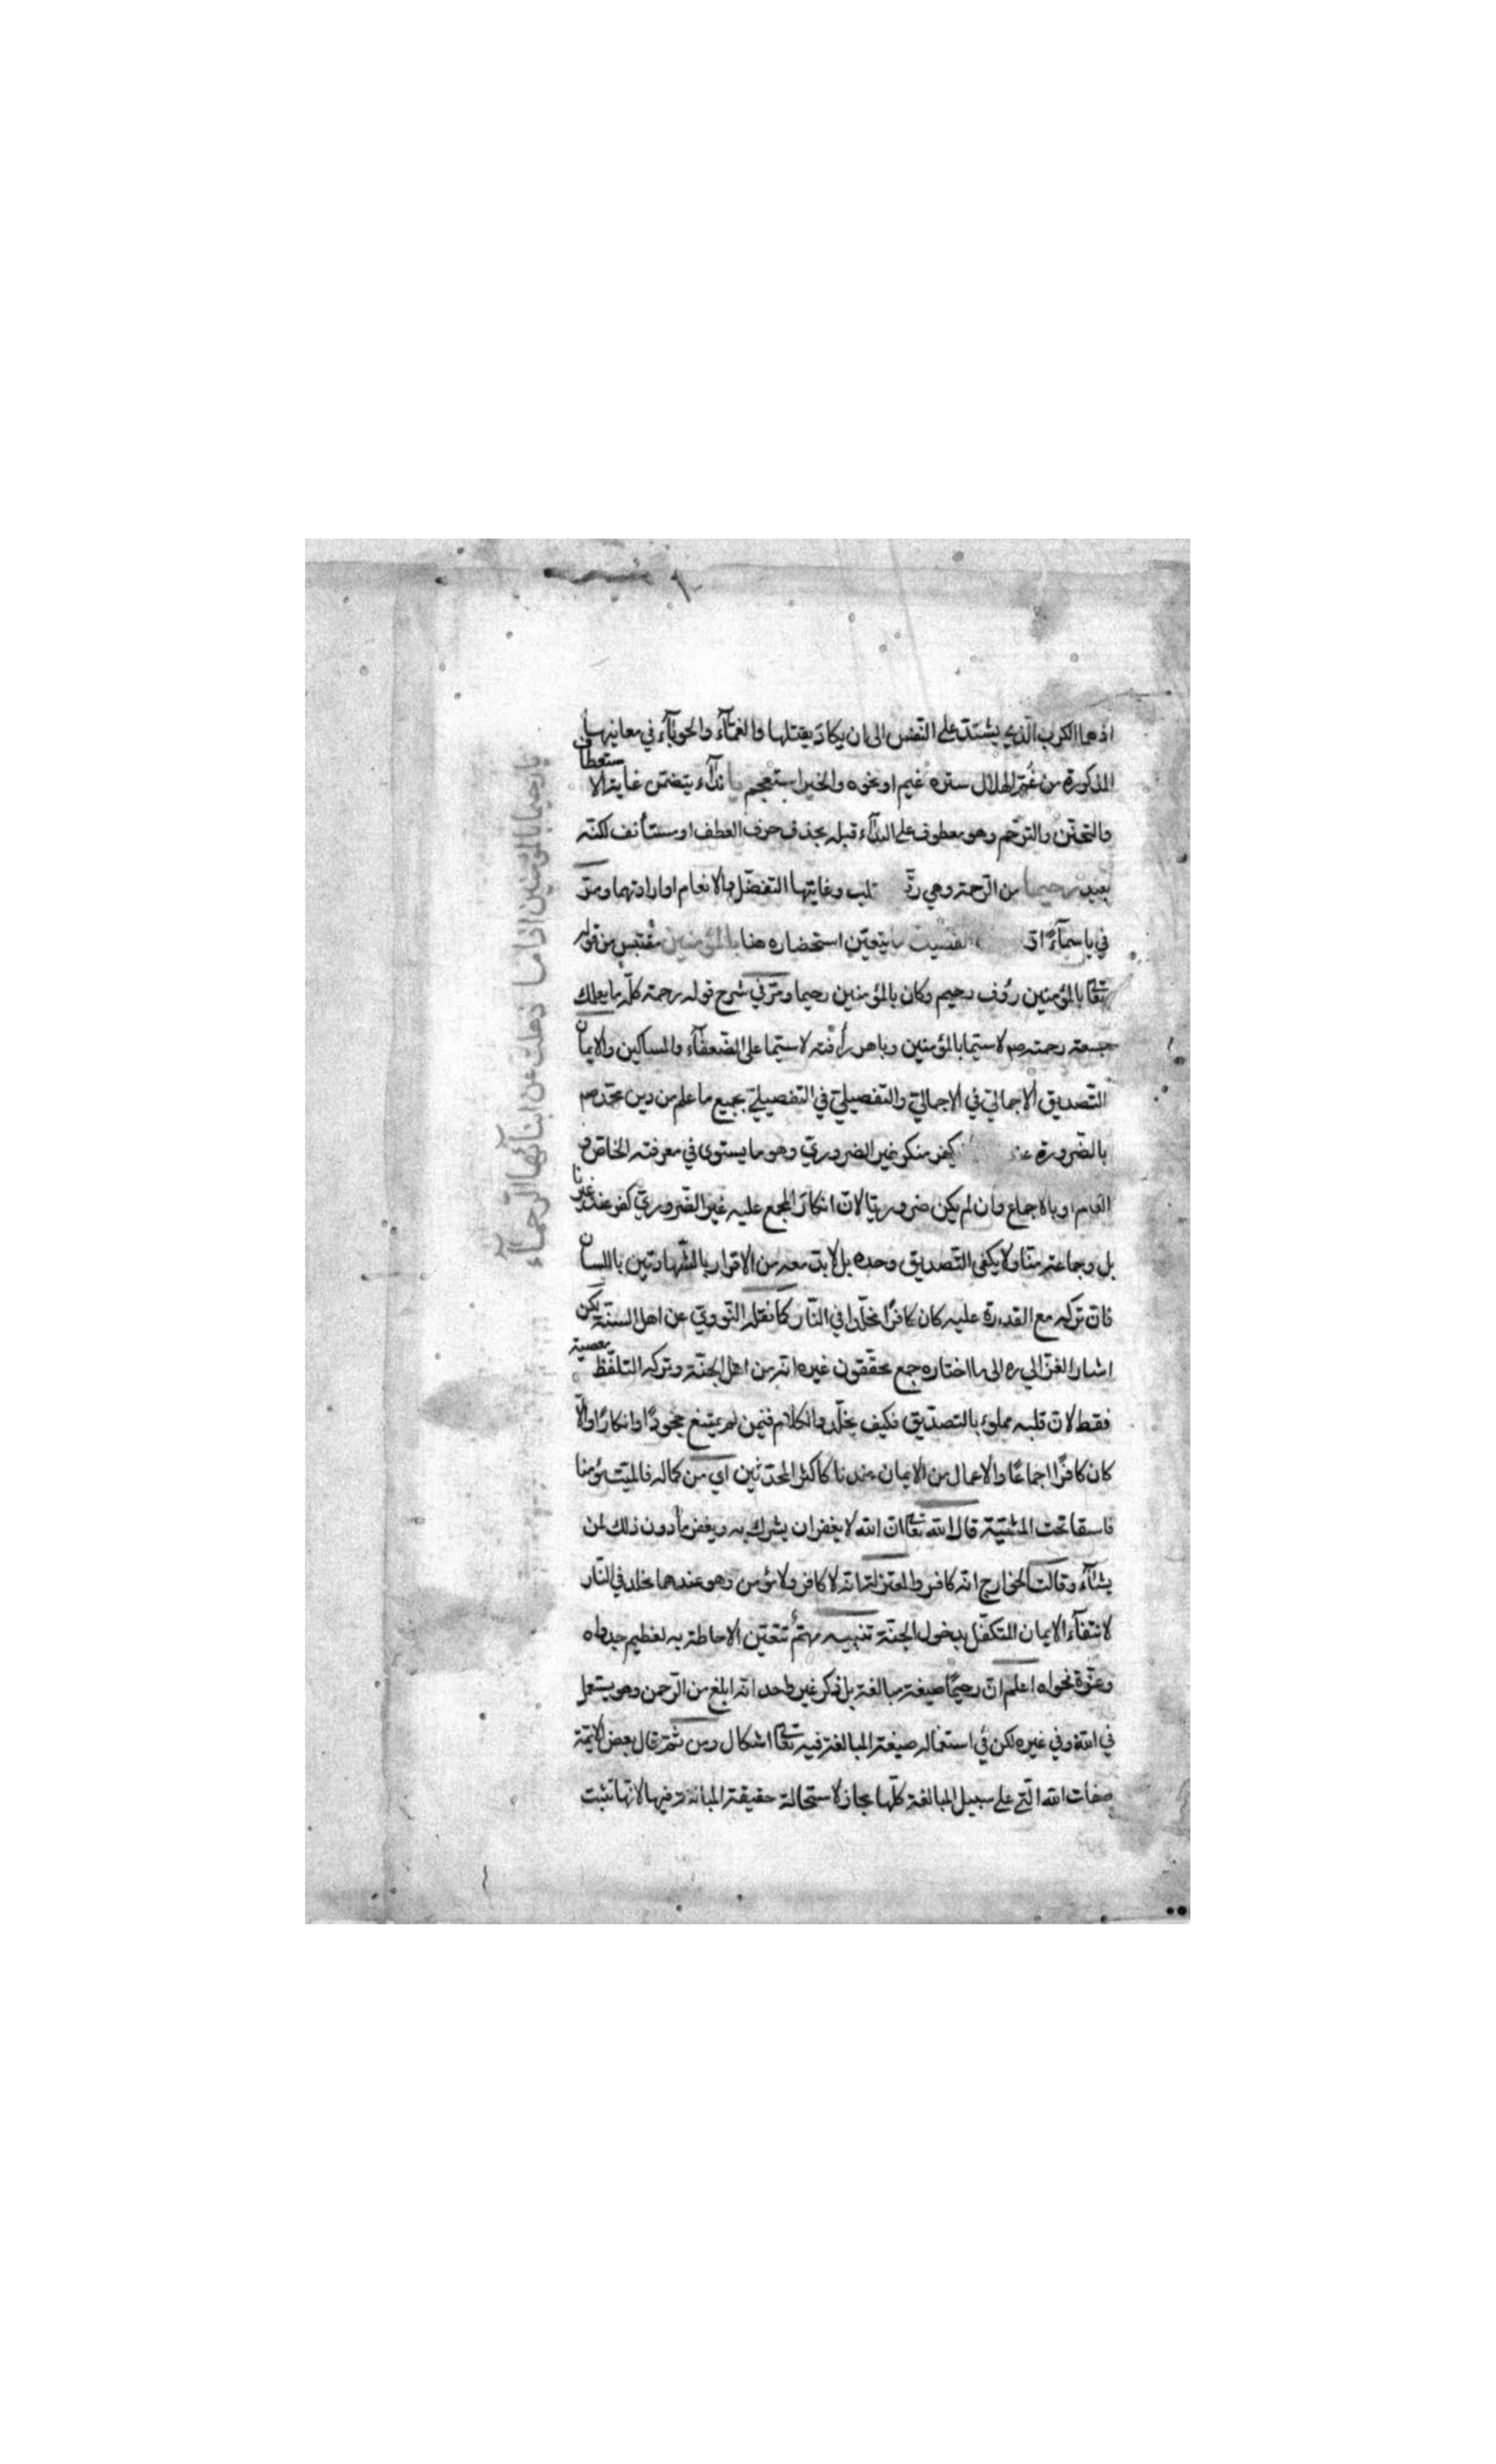 اذهما الكرب الذي يشتد على النفس الى ان يكاد يقتلها والغماء والحوباء في معانيها
المذكورة من غم الهلال ستره غيم او نحوه والخبر استعجم يا نداء يتضمن غاية الاستعطاف
والتحنن والترحم وهو معطوف على النداء قبله بحذف حرف العطف او مستأنف لكنه
بعيد رحيما من الرحمة وهي رقة قلب وغايتها التفضل والانعام او ارادتهما ومر
في يا سماء يتعين استحضاره هنا بالمؤمنين مقتبس من قوله
تعا بالمؤمنين رؤف رحيم وكان بالمؤمنين رحيما ومر في شرح قوله رحمة كله ما يعلك
بسعة رحمته صم لا سيما بالمؤمنين وباهر رأفته لا سيما على الضعفاء والمساكين والايمان
التصديق الاجمالي في الاجمالي والتفصيلي في التفصيلي بجميع ما علم من دين محمد صم
بالضرورة يكفر منكر غير الضروري وهو ما يستوى في معرفته الخاص و
العام او بالاجماع وان لم يكن ضروريا لان انكار المجمع عليه غير الضروري كفر عند غيرنا
بل وجماعة منا ولا يكفى التصديق وحده بل لا بد معه من الاقرار بالشهادتين باللسان
فان تركه مع القدرة عليه كان كافرا مخلدا في النار كما نقله النووي عن اهل السنة لكن
اشار الغزالي ره الى ما اختاره جمع محققون غيره انه من اهل الجنة وتركه التلفظ معصية
فقط لان قلبه مملوء بالتصديق فكيف يخلد والكلام فيمن لم يمتنع جحودا وانكارا والا
كان كافرا اجماعا والاعمال من الايمان عندنا كاكثر المحدثين اي من كماله فالميت مؤمنا
فاسقا تحت المشيئة قال الله تعا ان الله لا يغفر ان يشرك به ويغفر ما دون ذلك لمن
يشاء وقالت الخوارج انه كافر والمعتزلة انه لا كافر ولا مؤمن وهو عندهما مخلد في النار
لانتفاء الايمان المتكفل بدخول الجنة تنبيه مهم تتعين الاحاطة به لعظيم جدواه
وعزة فحواه اعلم ان رحيما صيغة مبالغة بل ذكر غير واحد انه ابلغ من الرحمن وهو يستعمل
في الله وفي غيره لكن في استعماله صيغة المبالغة فيه تعا اشكال ومن ثمة قال بعض الائمة
صفات الله التي على سبيل المبالغة كلها مجاز لاستحالة حقيقة المبالغة فيها لانها تثبت
يا رحيما بالمؤمنين اذا ما ذهلت عن ابنائها الرحماء